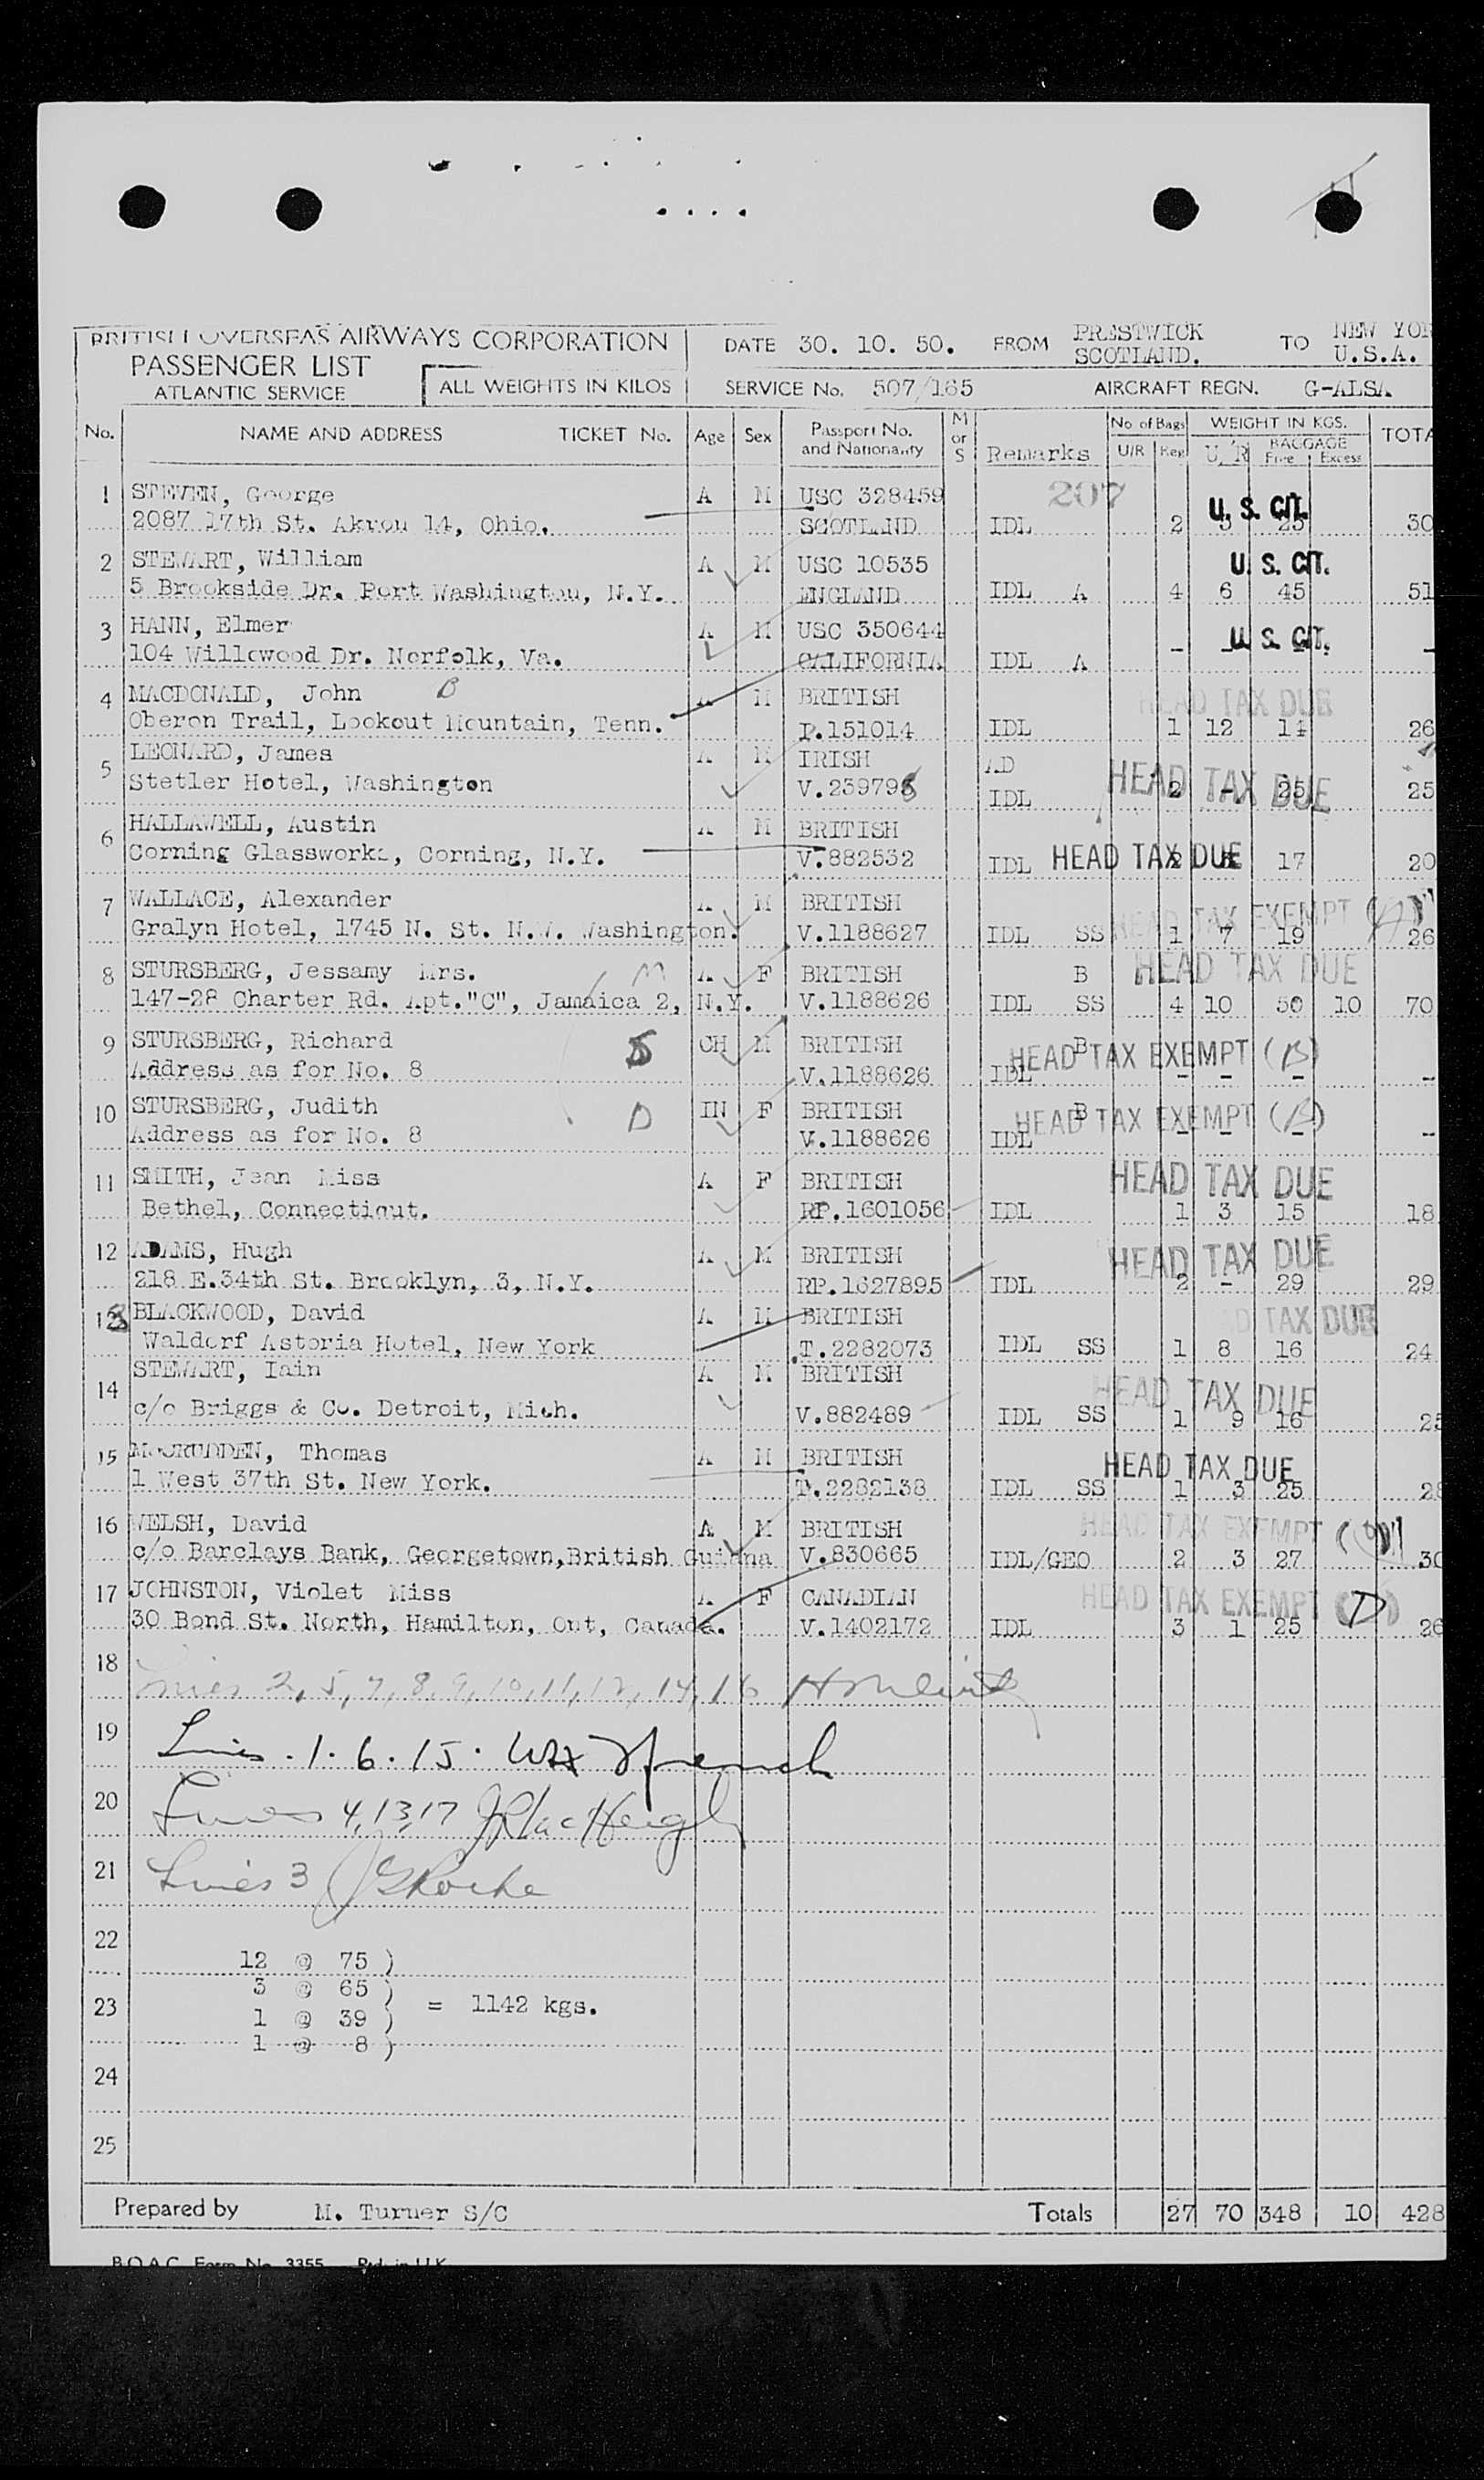 BRITISH OVERSEAS AIRWAYS CORPORATION
PASSENGER LIST
ATLANTIC SERVICE
ALL WEIGHTS IN KILOS
DATE 30. 10. 50. FROM PRESTWICK SCOTLAND. TO NEW YOR U.S.A.
SERVICE No. 507/165 AIRCRAFT REGN. G-ALSA
No. NAME AND ADDRESS TICKET No. Age Sex Passport No. and Nationality M or S Remarks No of Bags U/R Reg WEIGHT IN KGS. U/R BAGGAGE Free Excess TOTA
1 STEVEN, George A M USC 328459 207 U. S. CIT.
2087 17th St. Akron 14, Ohio. SCOTLAND IDL 2 5 25 30
2 STEWART, William A M USC 10535 U. S. CIT.
5 Brookside Dr. Port Washington, N.Y. ENGLAND IDL A 4 6 45 51
3 HANN, Elmer A M USC 350644 U. S. CIT.
104 Willowood Dr. Norfolk, Va. CALIFORNIA IDL A - - - -
4 MACDONALD, John B A M BRITISH HEAD TAX DUE
Oberon Trail, Lookout Mountain, Tenn. P.151014 IDL 1 12 14 26
5 LEONARD, James A M IRISH AD HEAD TAX DUE
Stetler Hotel, Washington V.239798 IDL 2 - 25 25
6 HALLAWELL, Austin A M BRITISH
Corning Glassworks, Corning, N.Y. V.882532 IDL HEAD TAX DUE 2 17 20
7 WALLACE, Alexander A M BRITISH HEAD TAX EXEMPT (A)
Gralyn Hotel, 1745 N. St. N.W. Washington. V.1188627 IDL SS 1 7 19 26
8 STURSBERG, Jessamy Mrs. M A F BRITISH B HEAD TAX DUE
147-28 Charter Rd. Apt."C", Jamaica 2, N.Y. V.1188626 IDL SS 4 10 50 10 70
9 STURSBERG, Richard S CH M BRITISH B HEAD TAX EXEMPT (B)
Address as for No. 8 V.1188626 IDL - - - -
10 STURSBERG, Judith D IN F BRITISH B HEAD TAX EXEMPT (B)
Address as for No. 8 V.1188626 IDL - - - -
11 SMITH, Jean Miss A F BRITISH HEAD TAX DUE
Bethel, Connecticut. RP.1601056 IDL 1 3 15 18
12 ADAMS, Hugh A M BRITISH HEAD TAX DUE
218 E.34th St. Brooklyn, 3, N.Y. RP.1627895 IDL 2 - 29 29
13 BLACKWOOD, David A M BRITISH HEAD TAX DUE
Waldorf Astoria Hotel, New York T.2282073 IDL SS 1 8 16 24
14 STEWART, Iain A M BRITISH HEAD TAX DUE
c/o Briggs & Co. Detroit, Mich. V.882489 IDL SS 1 9 16 25
15 McCRUDDEN, Thomas A M BRITISH HEAD TAX DUE
1 West 37th St. New York. T.2282138 IDL SS 1 3 25 28
16 WELSH, David A M BRITISH HEAD TAX EXEMPT
c/o Barclays Bank, Georgetown,British Guiana V.830665 IDL/GEO 2 3 27 30
17 JOHNSTON, Violet Miss A F CANADIAN HEAD TAX EXEMPT (D)
30 Bond St. North, Hamilton, Ont, Canada. V.1402172 IDL 3 1 25 26
18 Lines 2, 5, 7, 8, 9, 10, 11, 12, 14, 16
19 Lines . 1 . 6 . 15 . French
20 Lines 4, 13, 17
21 Lines 3 Roche
22
12 @ 75 )
3 @ 65 )
23 = 1142 kgs.
1 @ 39 )
1 @ 8 )
24
25
Prepared by M. Turner S/C Totals 27 70 348 10 428
B.O.A.C. Form No. 3355 Ptd. in U.K.